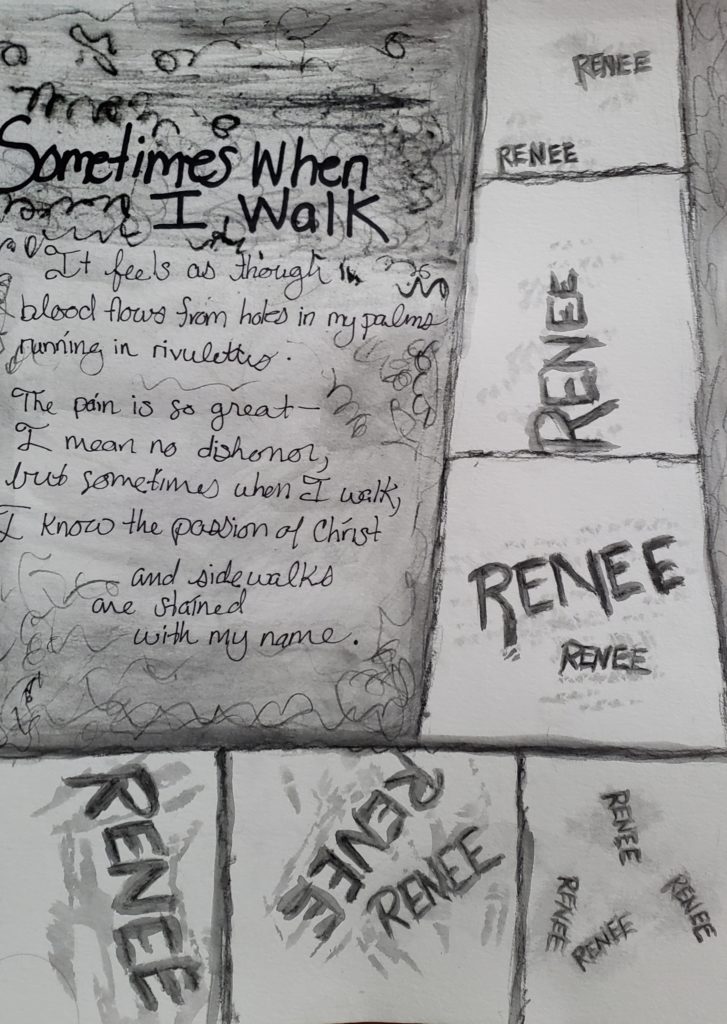 Sometimes When
I Walk
It feels as though
blood flows from holes in my palms
running in rivulettes.
The pain is so great—
I mean no dishonor,
but sometimes when I walk,
I know the passion of Christ
and sidewalks
are stained
with my name.
RENEE
RENEE
RENEE
RENEE
RENEE
RENEE
RENEE
RENEE
RENEE
RENEE
RENEE
RENEE
RENEE